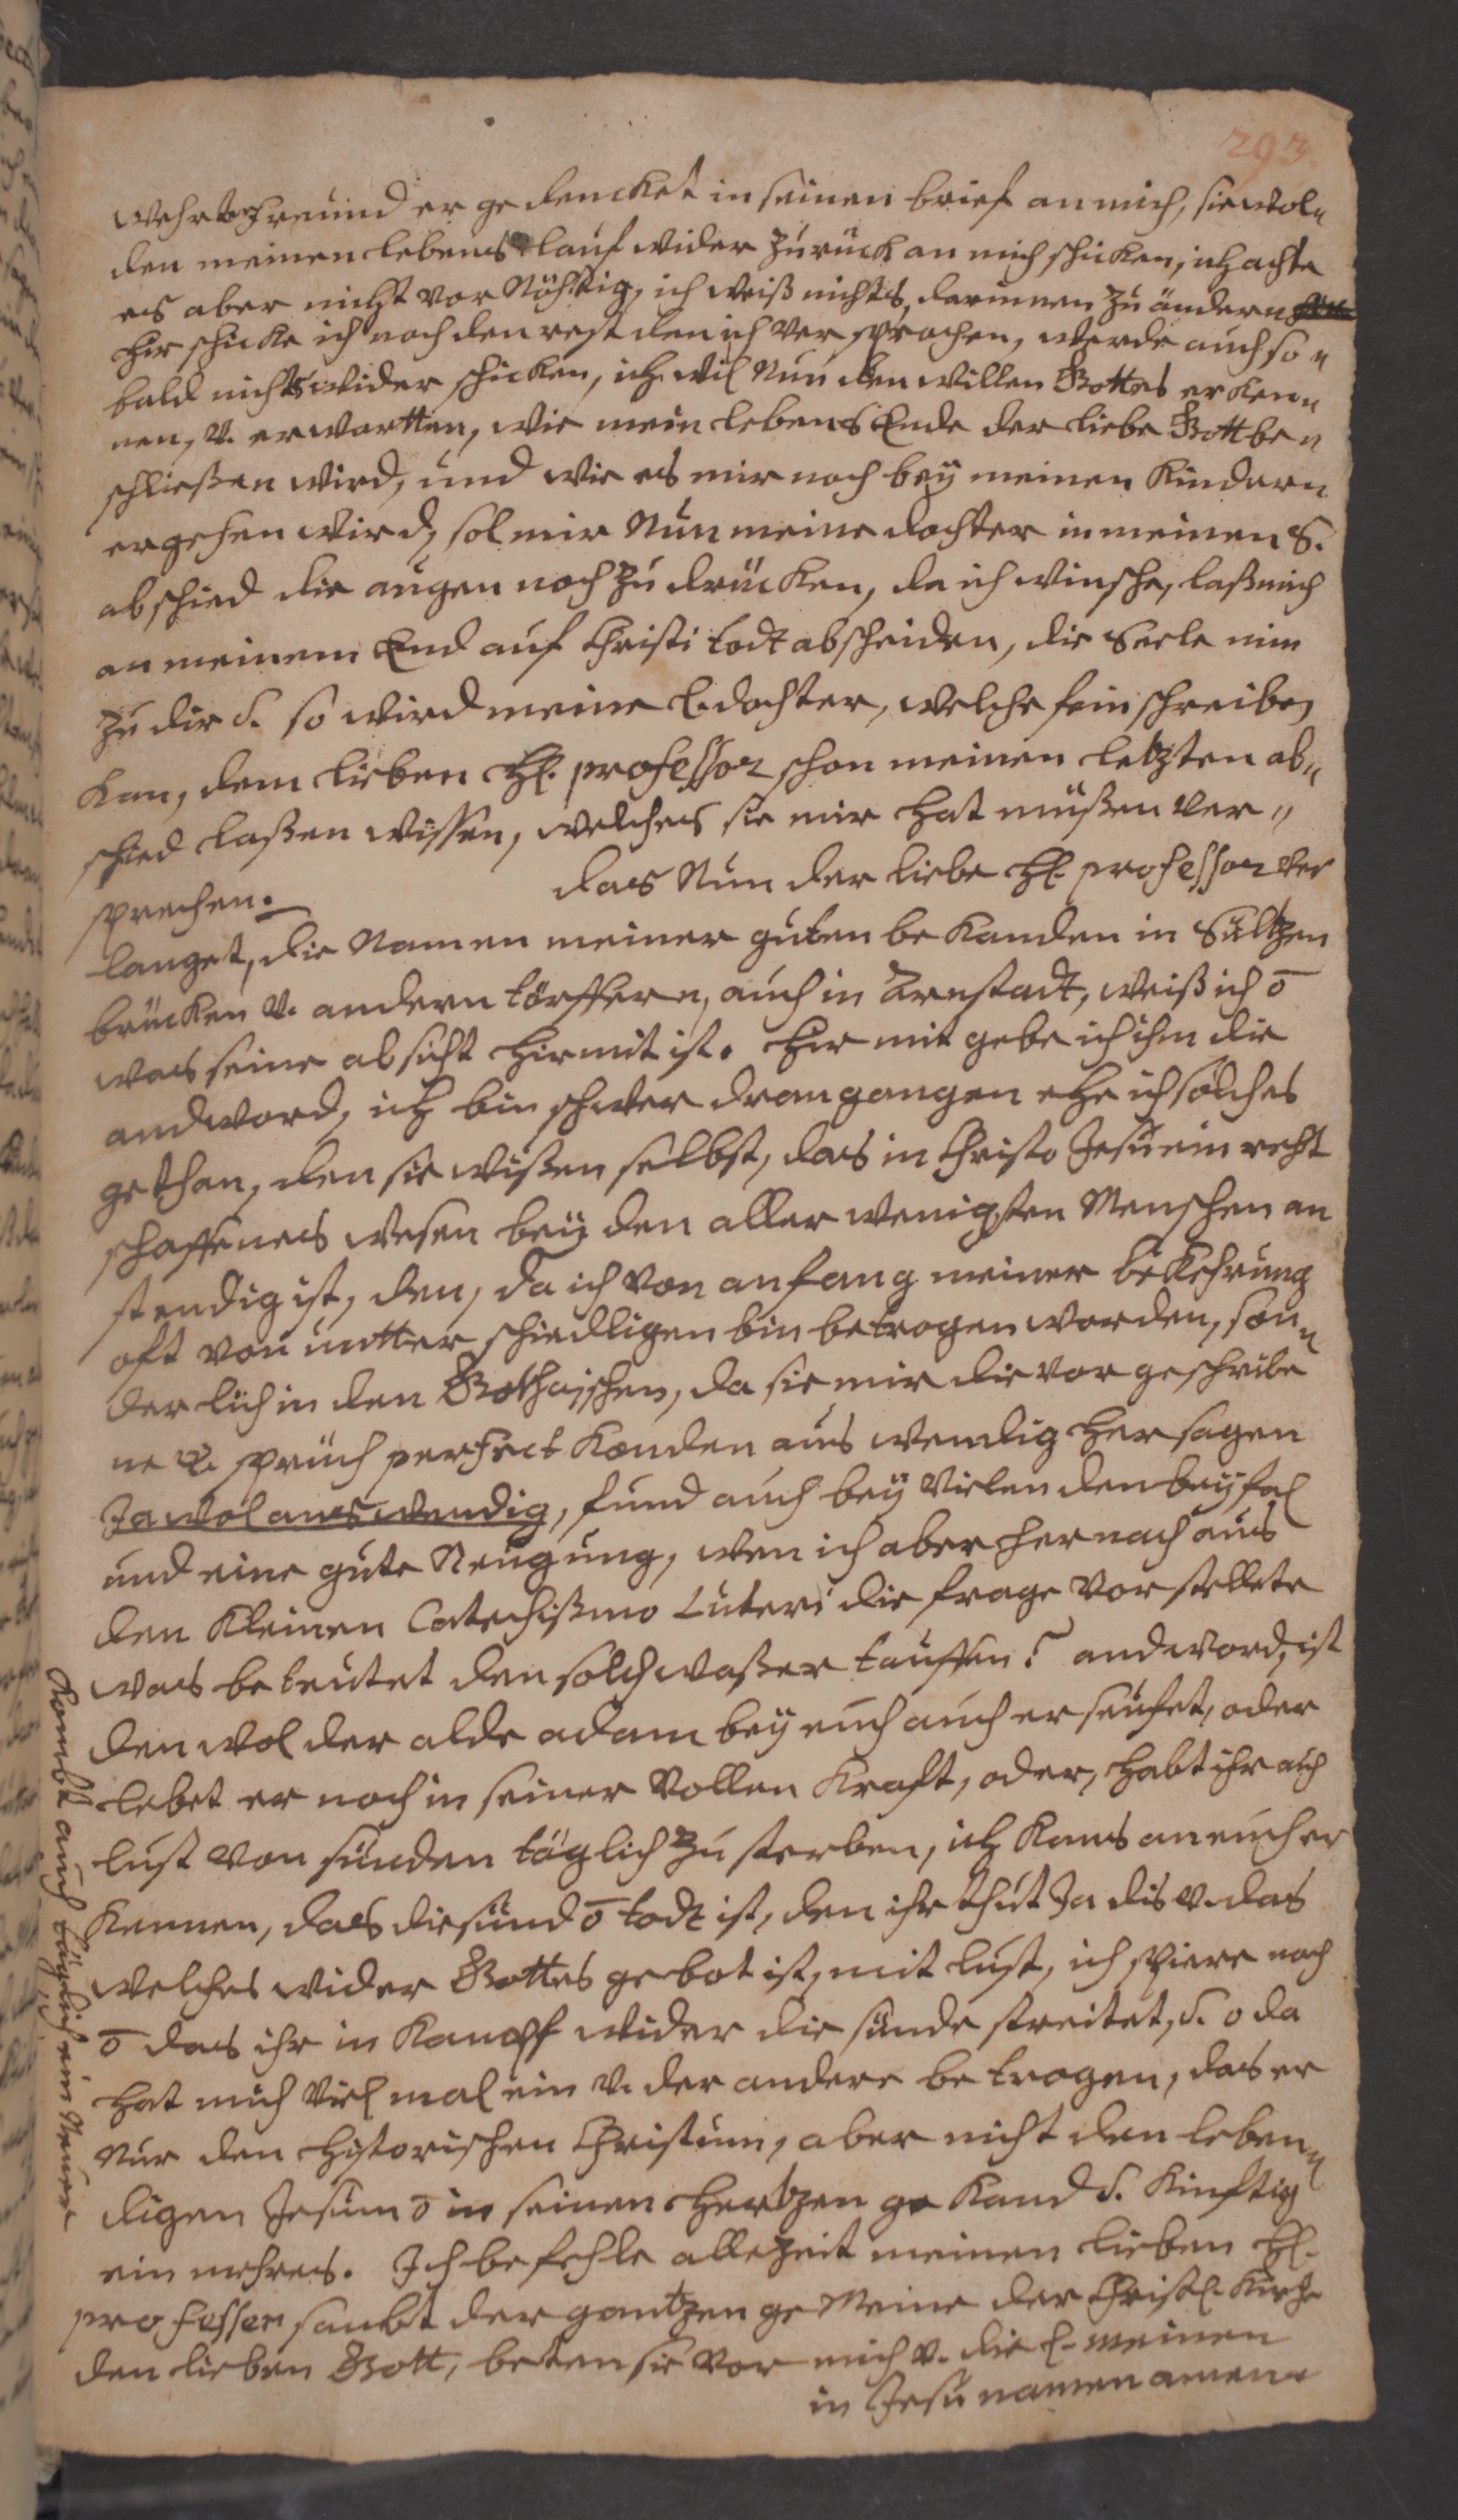 293
wehrter freund er gedencket in seinen brief an mich, sie wol„
den meinen lebens lauf wider zurück an mich schicken, ich achte
es aber nicht vor Nöhtig, ich weiß nichts, darinnen zu ändern
hir schicke ich noch den rest den ich versprochen, werde auch so„
bald nichts wider schicken, ich wil Nun den willen Gottes erken„
nen, v. erwartten, wie mein lebens Ende der liebe Gott be„
schließen wird, und wie es mir noch bey meinen Kindern
ergehen wird, sol mir Nun meine dochter in meinen S.
abschied die augen noch zu drücken, da ich winsche, laß mich
an meinem End auf Christi todt abscheiden, die Seele nim
zu dir S. so wird meine l. dochter, welche fein schreiben
kan, dem lieben H. professor schon meinen letzten ab„
schied laßen wissen, welches sie mir hat müßen ver„
sprechen. das Nun der liebe H. professor ver
langet, die Namen meiner guten bekanden in Sültzen
brücken v. andern törffern, auch in Arnstadt, weiß ich ō
was seine absicht hirmit ist. hir mit gebe ich ihm die
andword, ich bin schwer dran gangen ehe ich solches
gethan, den sie wißen selbst, das in Christo Jesu ein recht
schaffenes wesen bey den aller wenigsten Menschen an
stendig ist, den, da ich von anfang meiner bekehrung
oft von untterschiedligen bin betrogen worden, son„
derlich in den Gothaischen, da sie mir die vor geschribe
ne sprüch perfect konden aus wendig her sagen
Ja wol aus wendig, fund auch bey vielen den beyfal
und eine gute Neugung, wen ich aber hernach aus
den Kleinen Catechißmo Luteri die frage vor stellete
was beteutet den solch waßer tauffen? andword, ist
den wol der alde adam bey euch auch erseufet, oder
lebet er noch in seiner vollen Kraft, oder, habt ihr auch
lust von sünden täglich zu sterben, ich kans an euch er
kennen, das die sünd ō todt ist, den ihr thut Ja dis v. das
welches wider Gottes gebot ist, mit lust, ich spiere noch
ō das ihr in Kampff wider die sünde streitet, S. o da
hat mich viel mal ein v. der andere betrogen, das er
Nur den historischen Christum, aber nicht den leben„
digen Jesum ō in seinen hertzen gekand S. Kinftig
ein mehres. Ich befehle allezeit meinen lieben H.
professer sambt der gantzen ge Meine der Christl. Kirche
den lieben Gott, beten sie vor mich v. die l. meinen
in Jesu namen amen
kombt auch täglich ein Neuer